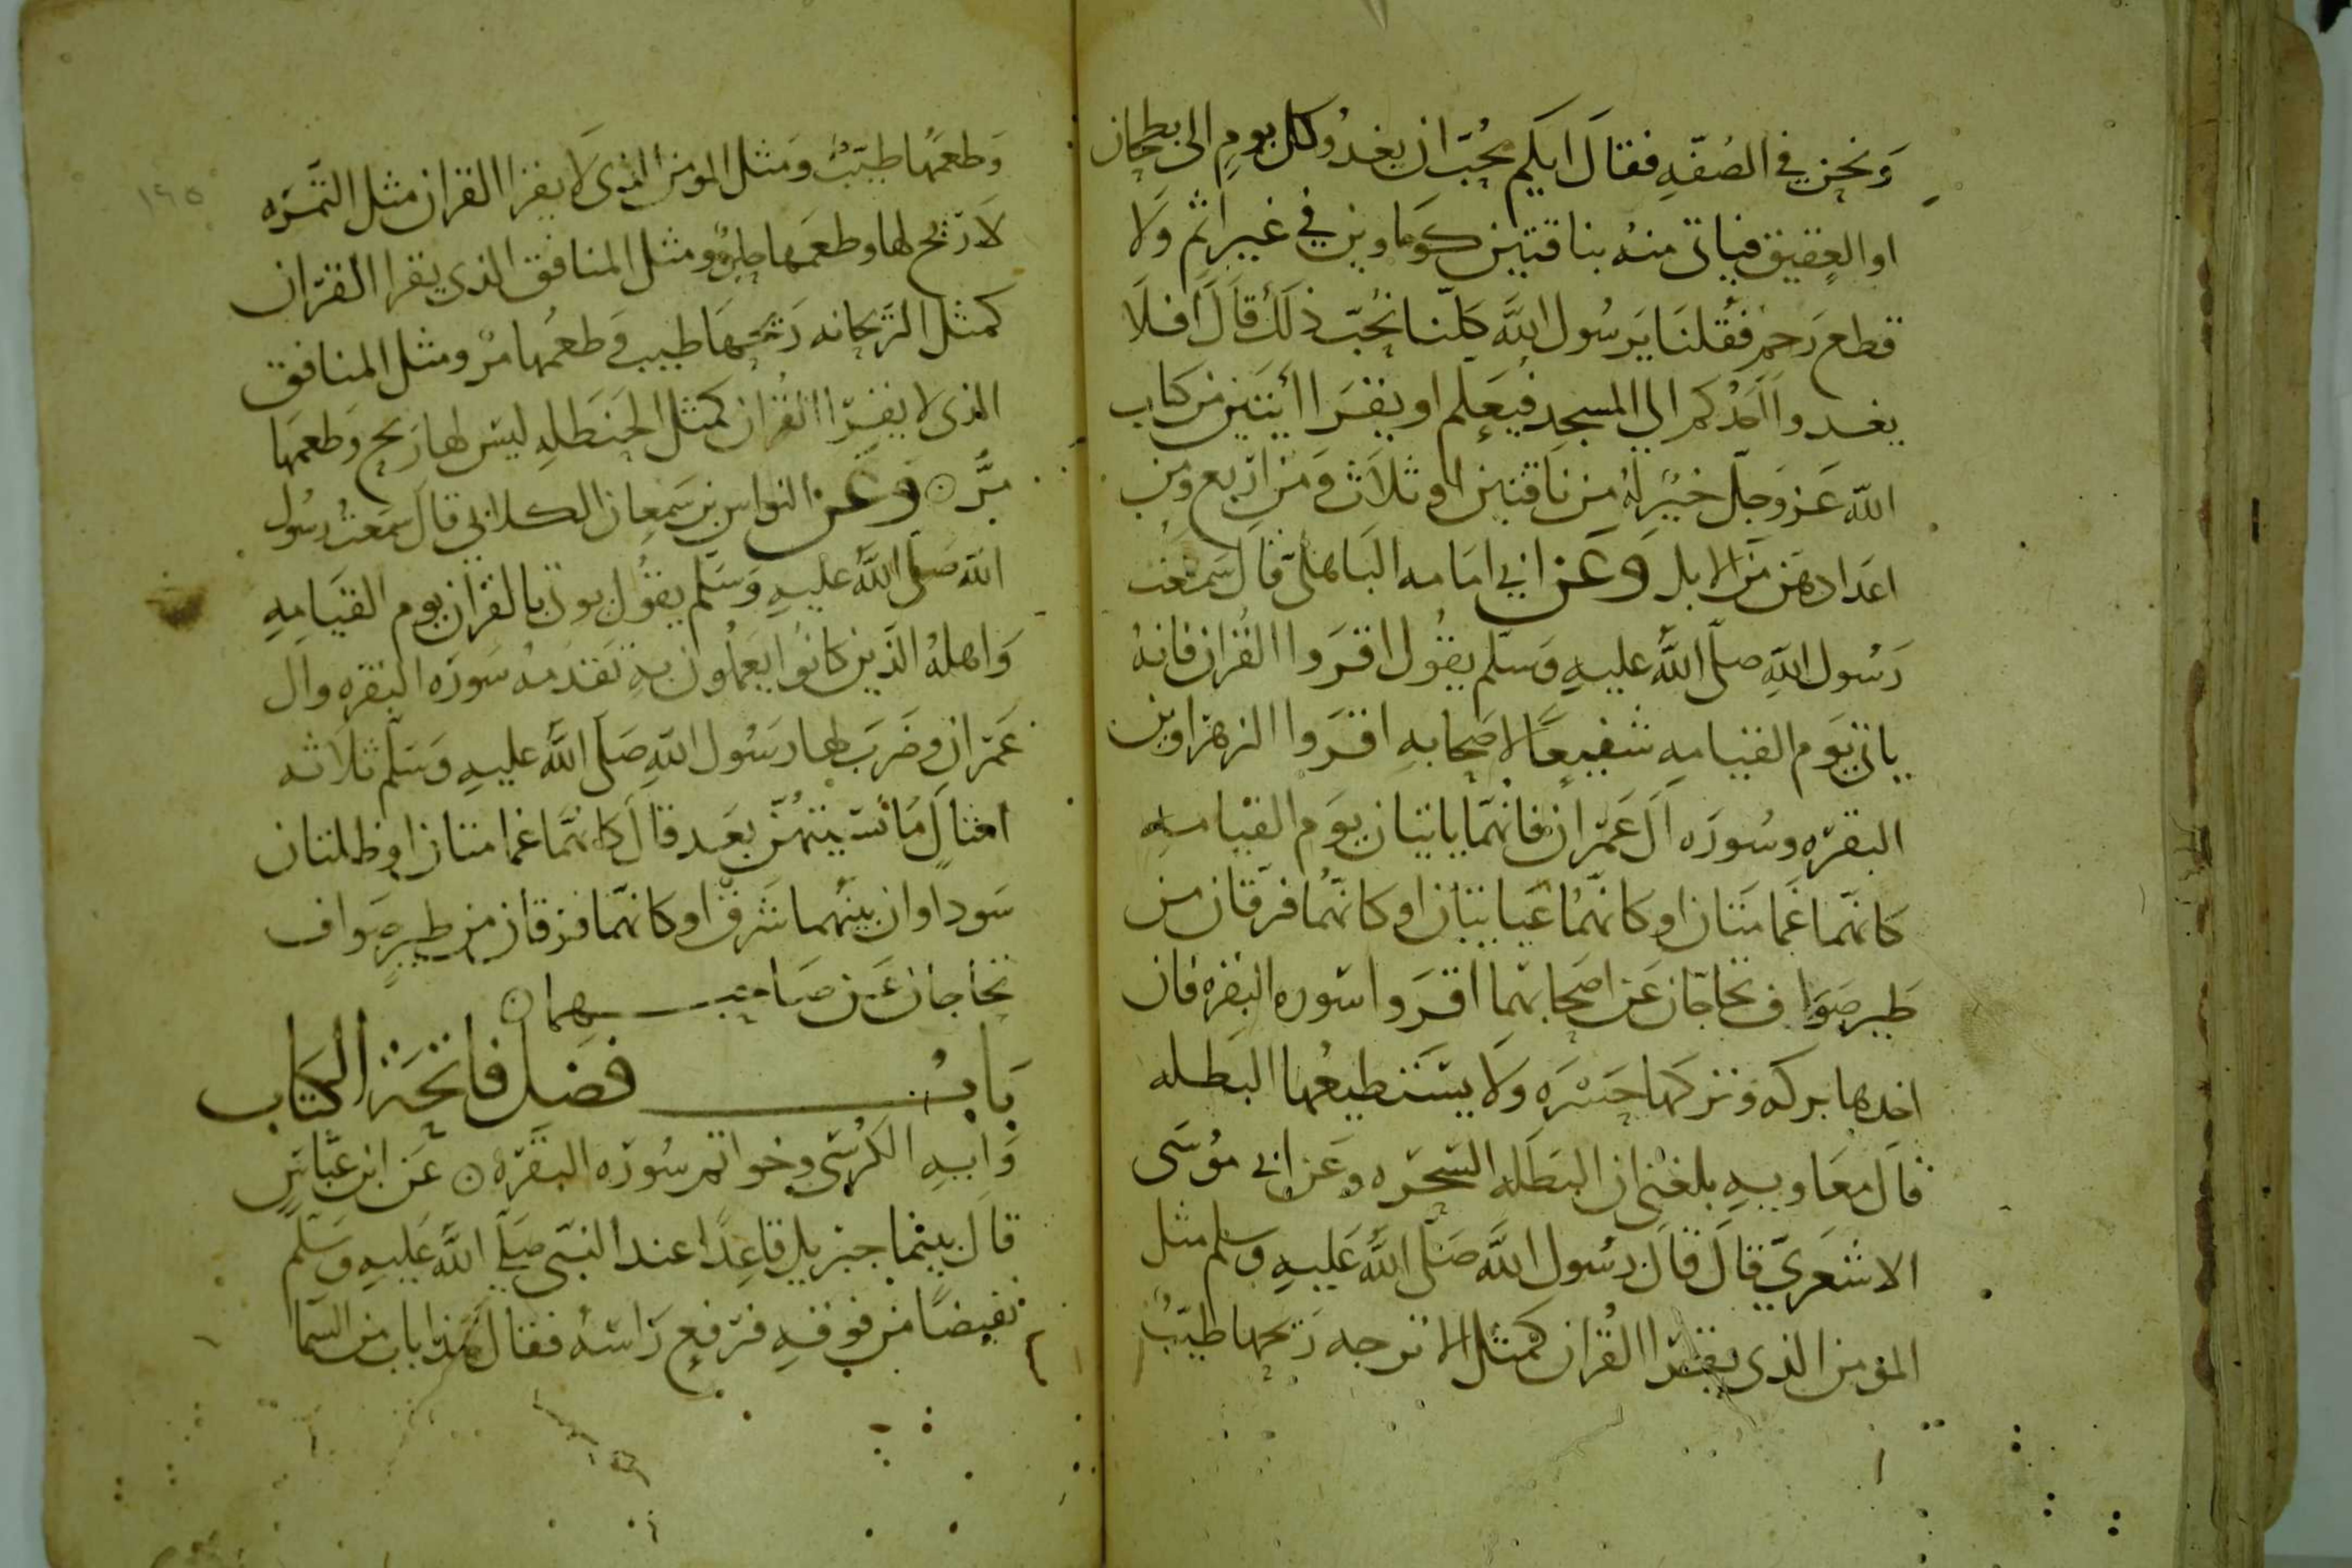 ونحن في الصُفّهِ فقالَ ايكم يحُبّ ان يغدُو كل يومٍ الى بطحان
او العقيق فياتى منهُ بناقتين كوماوين في غير اثم وَلَا
قطع رَحم فَقُلنَا يَرسُول اللَّه كلّنا نُحبّ ذلكَ قالَ افلَا
يغدوا احَدُكم الى المسجد فيَعلم او يقرَا أيَتين من كتاب
الله عَز وَجلّ خيرٌ لهُ من ناقتين او ثلاَث وَمن اربع ومن
اعدَادهن من الابل وَعَن ابي امَامه البَاهلى قالَ سَمعَت
رَسُول اللهِ صلّى اللَّه عليهِ وَسلّم يقُول اقرَوا القُران فانهُ
ياتى يَوم القيامهِ شفيعًا لاصحابهِ اقرَوا الزهرَاوين
البقره وسُورَه اَل عمران فانهّما ياتيان يَوم القيامهِ
كانهّما غمامتَان او كانهّمُا غيَايتان او كانهّمُا فرقان من
طَير صَوَاف تحاجّان عَن اصحابهما اقرَوا سَوره البقره فان
اخدها بركه وتركها حَسْرَه وَلَا يسْتطيعُها البَطله
قالَ معَاويهِ بلغنى ان البَطَله السَّحَرَه وعَن ابى مُوسَى
الاشعَريّ قالَ قالَ رسُول اللَّه صَلّى اللَّه عَليهِ وسلم مثل
المؤمن الذى يقرا القُران كمثل الاترجه رَيحها طيّبُ
وَطعمُها طيّبُ ومَثل المومن الذى لَا يقرا القران مثل التّمَرَه
لَا ريح لها وطعمَها حلوٌ ومثل المنافق الذى يقرا القرّان
كمثل الرّيحانه رَيحَها طيب وَطعمُها مرّ ومثل المنافق
الذى لا يقرا القُران كمثل الحَنظلهِ ليسَ لها ريح وَطعمَها
مرَّ ۞ وَعَن النواس بن سَمعان الكلابي قالَ سَمَعتُ رسُول
الله صَلّى اللَّه عليهِ وَسَلم يقُول يوتى بالقران يوم القيَامهِ
وَاهلهُ الذّين كانُوا يَعمَلُون بهِ تقدمهُ سَورَه البقره وال
عَمرَان وضَرَبَ لهما رَسُول اللهِ صَلّى اللَّه عليهِ وَسَلّم ثلاَثه
امثالٍ مَا نسَيتهُنّ بعَد قالَ كانهّما غمامتان او ظلتان
سَوداوان بينهُما شرق او كانهّما فرقان من طيرٍ صَواف
تحاجان عَن صَاحبهمان
بَابُ فضل فاتحَة الكتاب
وَايهِ الكرُسَى وخواتم سُورَه البقرَه ۞ عَن ابن عبّاسٍ
قالَ بينما جبريل قاعِدًا عند النبّى صَلّى اللَّه عَليهِ وَسَلّم
نقيضًا من فوقهِ فرَفع رَاسَهُ فقالَ هَذا باب من السّما
١٩٥